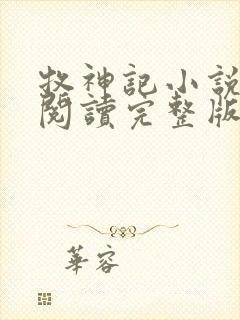 牧神記小說
閱讀完整版
華容